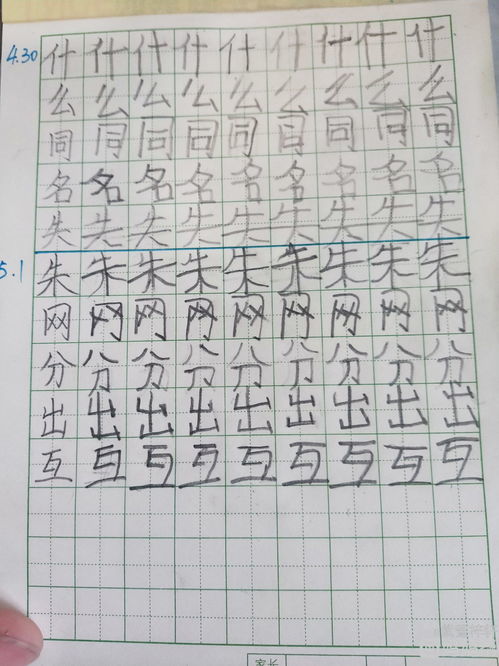 4.30 什什什什什什什什什
么么么么么么么么么
同同同同同同同同同
名名名名名名名名名
失失失失失失失失失
5.1 朱朱朱朱朱朱朱朱朱
网网网网网网网网网
分分分分分分分分分
出出出出出出出出出
互互互互互互互互互
家长